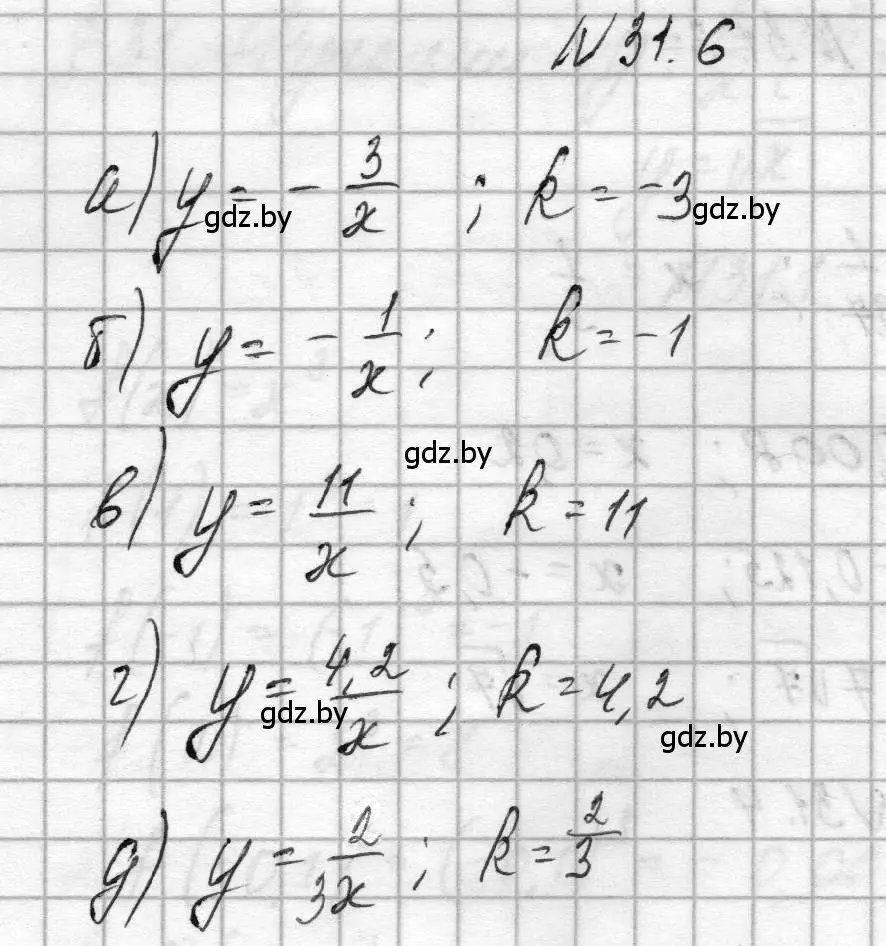 N 31.6
а) y = - 3/x ; k = -3
gdz.by gdz.by
б) y = - 1/x ; k = -1
gdz.by
в) y = 11/x ; k = 11
г) y = 4,2/x ; k = 4,2
gdz.by gdz.by
д) y = 2/3x ; k = 2/3